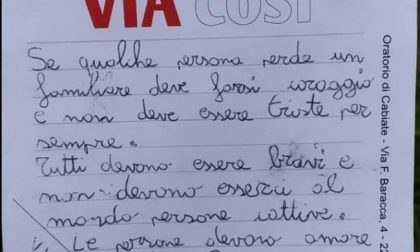 VIA COSÌ
Se qualche persona perde un
familiare deve farsi coraggio
e non deve essere triste per
sempre.
Tutti devono essere bravi e
non devono esserci al
mondo persone cattive.
Le persone devono amore
Oratorio di Cabiate - Via F. Baracca, 4 - 22